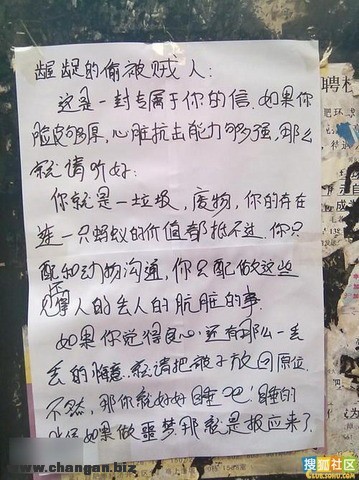 龌龊的偷被贼人:
这是一封专属于你的信.如果你
脸皮够厚,心脏抗击能力够强,那么
就请听好:
你就是一垃圾,废物,你的存在
连一只蚂蚁的价值都抵不过.你只
配和动物沟通,你只配做这些
人的丢人的肮脏的事.
如果你觉得良心还有那么一丢
丢的悔意.就请把被子放回原位
不然,那你就好好睡吧!睡的
时候如果做噩梦.那就是报应来了.
聘
www.changan.biz
搜狐社区
CLUB.SOHU.COM